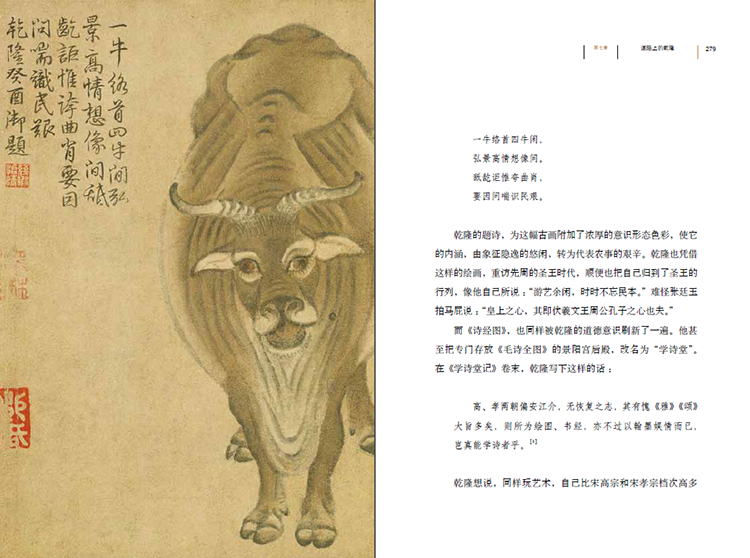 一牛絡首四牛閒弘
景高情想像間舐
齕詎惟誇曲肖要因
問喘識民艱
乾隆癸酉御題
第七章 279
一牛络首四牛闲,
弘景高情想像间。
舐龁讵惟夸曲肖,
要因问喘识民艰。
乾隆的题诗,为这幅古画附加了浓厚的意识形态色彩,使它
的内涵,由象征隐逸的悠闲,转为代表农事的艰辛。乾隆也凭借
这样的绘画,重访先周的圣王时代,顺便也把自己归到了圣王的
行列,像他自己所说:“游艺余闲,时时不忘民本。”难怪张廷玉
拍马屁说:“皇上之心,其即伏羲文王周公孔子之心也夫。”
而《诗经图》,也同样被乾隆的道德意识刷新了一遍。他甚
至把专门存放《毛诗全图》的景阳宫后殿,改名为“学诗堂”。
在《学诗堂记》卷末,乾隆写下这样的话:
高、孝两朝偏安江介,无恢复之志,其有愧《雅》《颂》
大旨多矣,则所为绘图、书经,亦不过以翰墨娱情而已,
岂真能学诗者乎。[4]
乾隆想说,同样玩艺术,自己比宋高宗和宋孝宗档次高多